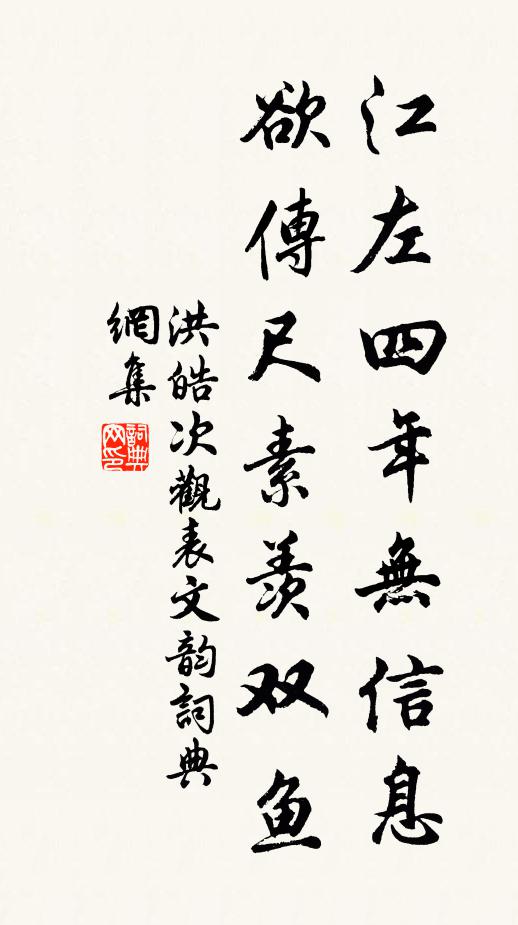 江左四年無信息
欲傳尺素羨双鱼
洪皓次觀表文韵詞典
網集
詞典
网印